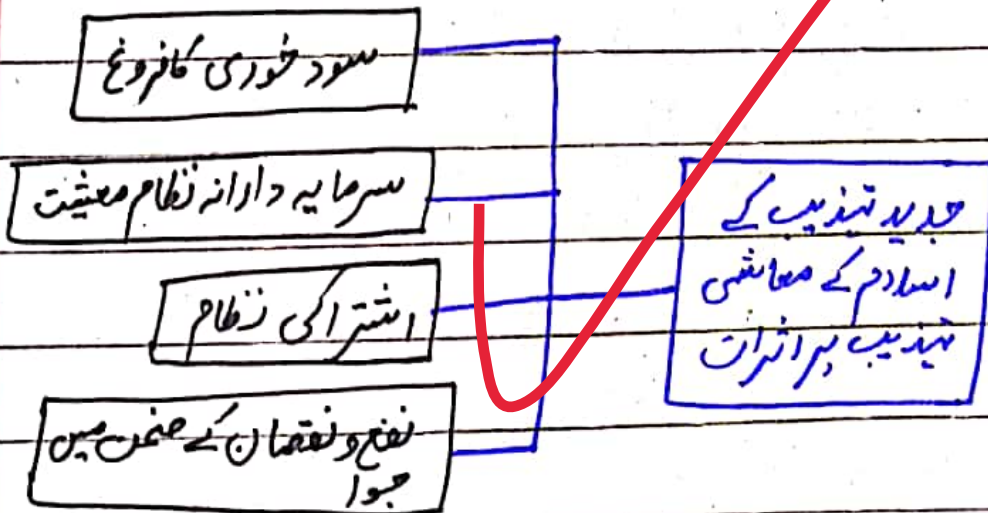 جدید تہذیب کے
اسلام کے معاشی
تہذیب پر اثرات
سود خوری کا فروغ
سرمایہ دارانہ نظام معیشت
اشتراکی نظام
نفع و نقصان کے ضمن میں
جوا